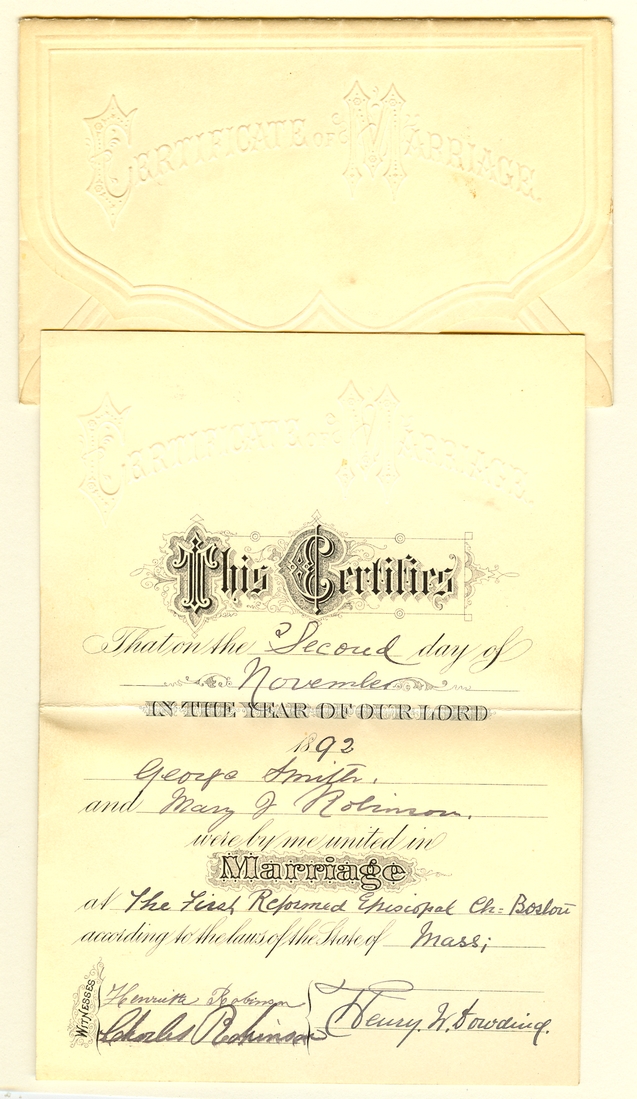 CERTIFICATE OF MARRIAGE.
CERTIFICATE OF MARRIAGE.
This Certifies
That on the Second day of
November
IN THE YEAR OF OUR LORD
1892
George Smith.
and Mary J Robinson.
were by me united in
Marriage
at The First Reformed Episcopal Ch: Boston
according to the laws of the State of Mass;
WITNESSES
Henrietta Robinson
Charles Robinson
Henry. W. Dowding.